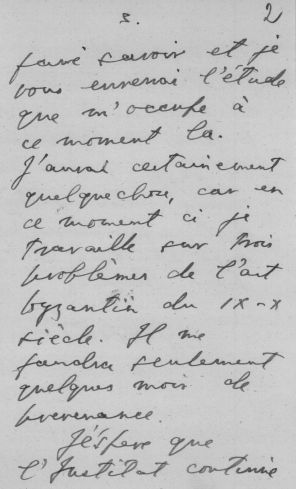 3. 2
faire savoir et je
vous enverrai l'étude
que m'occupe à
ce moment la.
J'aurai certainement
quelquechose, car en
ce moment ci je
travaille sur trois
problèmes de l'art
byzantin du IX-X
siècle. Il me
faudra seulement
quelques mois de
prevenance.
J'éspere que
l'Institut continue